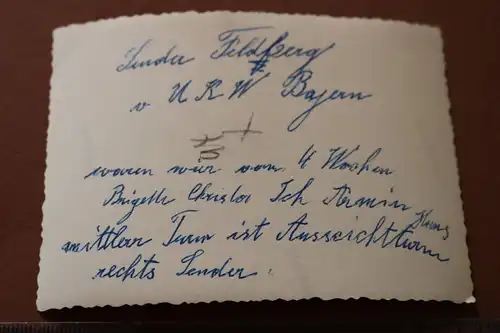 Sender Feldberg
v U K W Bayern
waren wir vor 4 Wochen
Brigette Christa Ich Armin Klaus
mittlerr Turm ist Aussichtturm
rechts Sender.